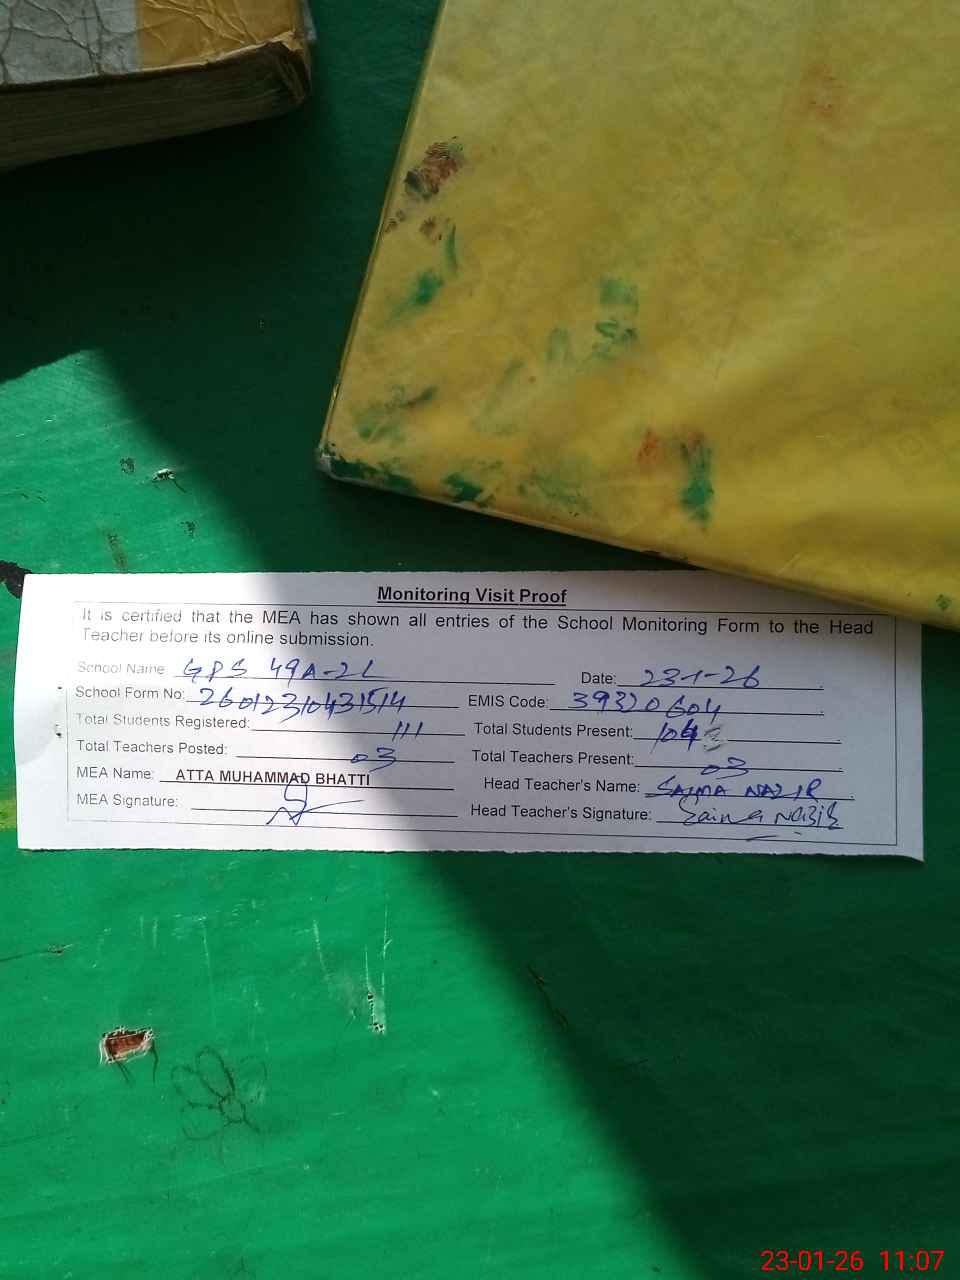 Monitoring Visit Proof
It is certified that the MEA has shown all entries of the School Monitoring Form to the Head
Teacher before its online submission.
School Name GPS 49A-2L Date: 23-1-26
School Form No: 26012310431514 EMIS Code: 39320604
Total Students Registered: 111 Total Students Present: 104
Total Teachers Posted: 03 Total Teachers Present: 03
MEA Name: ATTA MUHAMMAD BHATTI Head Teacher's Name: SAIMA NAZIR
MEA Signature: Head Teacher's Signature: Saima Nazir
23-01-26 11:07